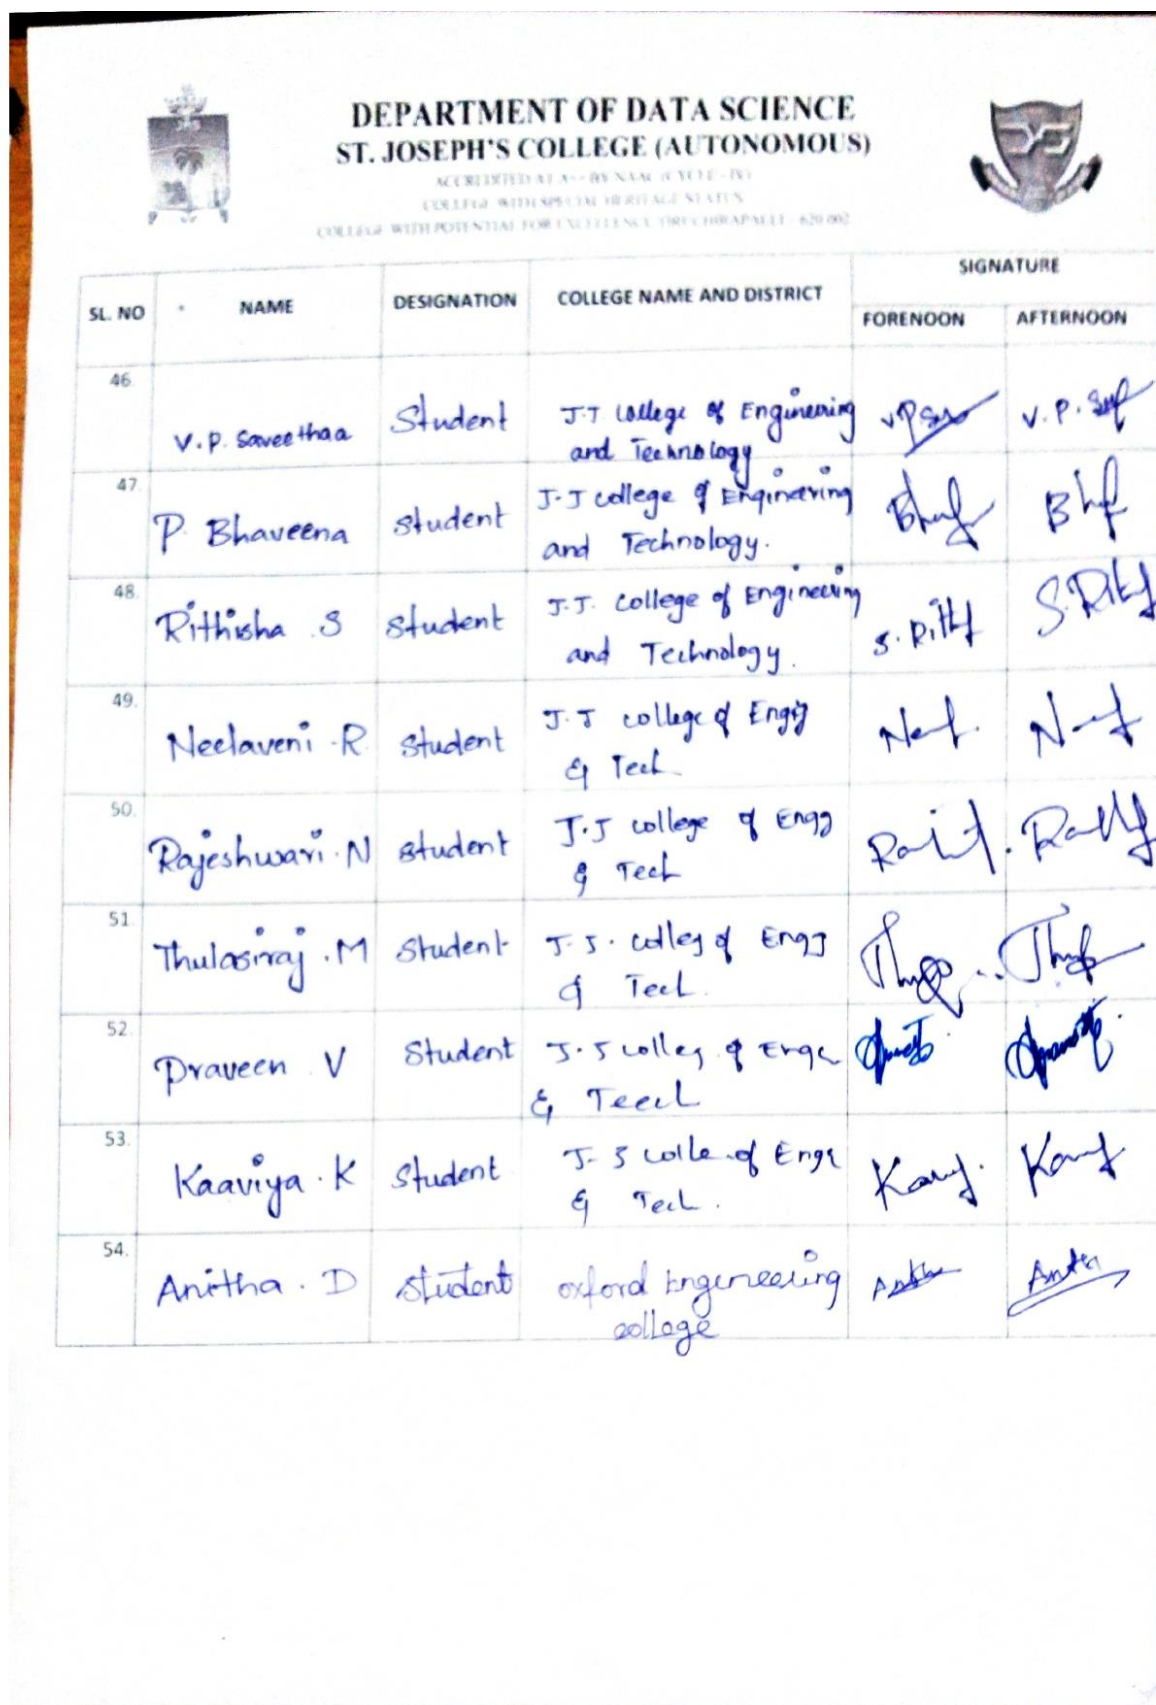 DEPARTMENT OF DATA SCIENCE
ST. JOSEPH'S COLLEGE (AUTONOMOUS)
ACCREDITED AT A++ BY NAAC (CYCLE - IV)
COLLEGE WITH SPECIAL HERITAGE STATUS
COLLEGE WITH POTENTIAL FOR EXCELLENCE TIRUCHIRAPALLI - 620 002
SL. NO NAME DESIGNATION COLLEGE NAME AND DISTRICT SIGNATURE
FORENOON AFTERNOON
46.
V.P. Saveethaa Student J.J College of Engineering
and Technology
47.
P. Bhaveena Student J.J College of Engineering
and Technology.
48.
Rithisha .S Student J.J. College of Engineering
and Technology.
49.
Neelaveni .R Student J.J college of
& Tech
50.
Rajeshwari.N Student J.J college of Engg
& Tech
51.
Thulasiraj.M Student J.J. of Engg
& Tech.
52.
Praveen V Student J.J of
&
53.
Kaaviya.K Student of
& Tech.
54.
Anitha.D Student oxford Engineering
college